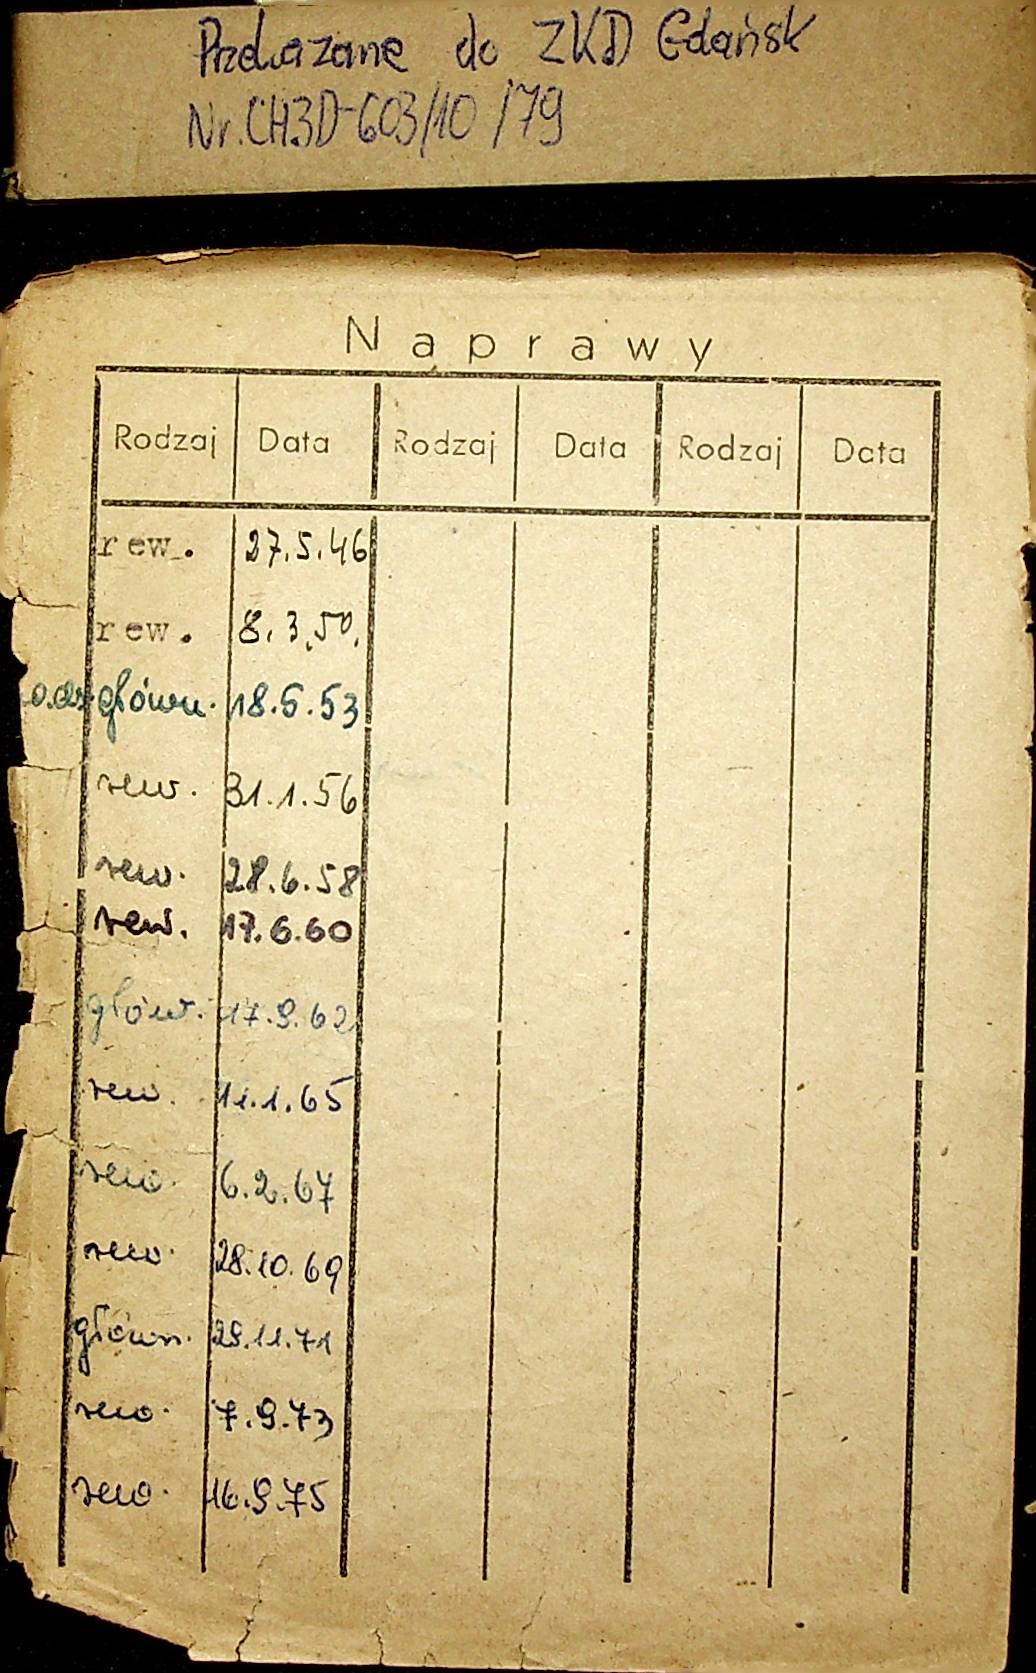 Przekazane do ZKD Gdańsk
Nr. CH3D-603/10/79
Naprawy
Rodzaj Data Rodzaj Data Rodzaj Data
rew. 27.5.46
rew. 8.3.50.
główn. 18.5.53
rew. 31.1.56
rew. 28.6.58
rew. 17.6.60
głów. 17.9.62
rew. 11.1.65
rew. 6.2.67
rew. 28.10.69
główn. 29.11.71
rew. 7.9.73
rew. 16.9.75